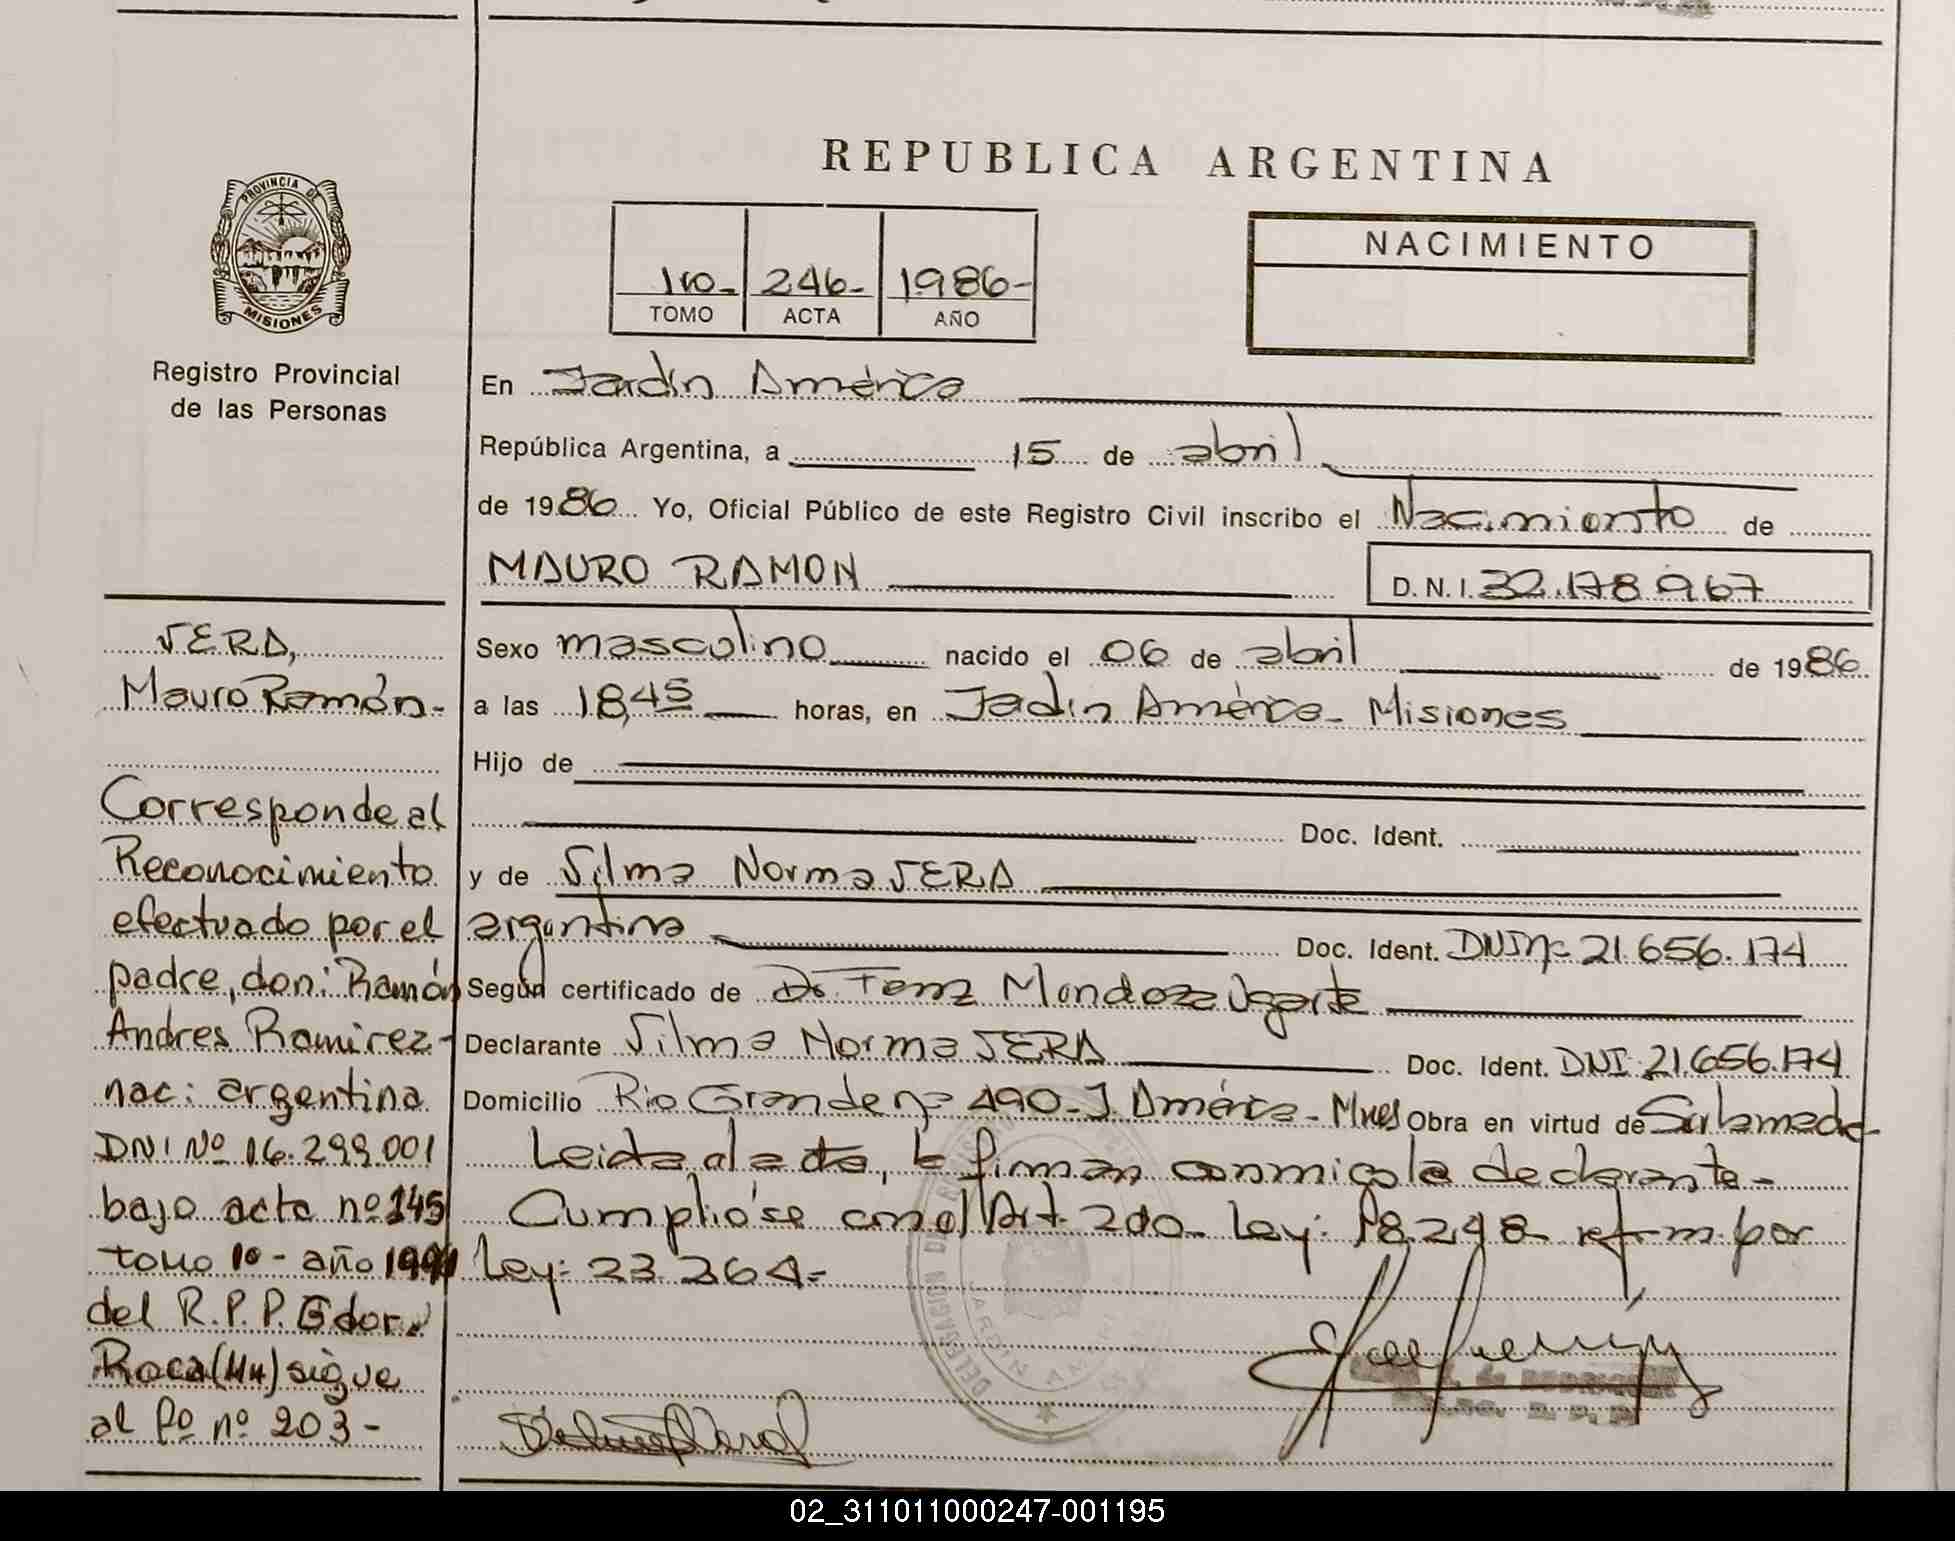 REPUBLICA ARGENTINA
PROVINCIA DE
MISIONES
Registro Provincial
de las Personas
1ro- 246- 1986-
TOMO ACTA AÑO
NACIMIENTO
En Jardín América
República Argentina, a 15 de abril
de 1986 Yo, Oficial Público de este Registro Civil inscribo el Nacimiento de
MAURO RAMON D.N.I. 32.178.967
Sexo masculino nacido el 06 de abril de 1986
a las 18,45 horas, en Jadin América- Misiones
Hijo de
Doc. Ident.
y de Vilma Norma VERA
argentina Doc. Ident. DNI nº 21.656.174
Según certificado de Dr. Mendoza Ugarte
Declarante Vilma Norma VERA Doc. Ident. DNI 21.656.174
Domicilio Rio Grande nº 490- J. América- Mnes Obra en virtud de Su llamado-
Leida el acta, la firman conmigo la declarante-
Cumplióse con el Art. 2do- Ley: 18.248- refrm. por
Ley: 23.264-
VERA,
Mauro Ramón-
Corresponde al
Reconocimiento
efectuado por el
padre, don: Ramón
Andres Ramirez-
nac: argentina
DNI Nº 16.299.001
bajo acta nº 145
tomo 1º - año 1991
del R.P.P. Gdor.
Roca (Mn) sigue
al fº nº 203-
02_311011000247-001195